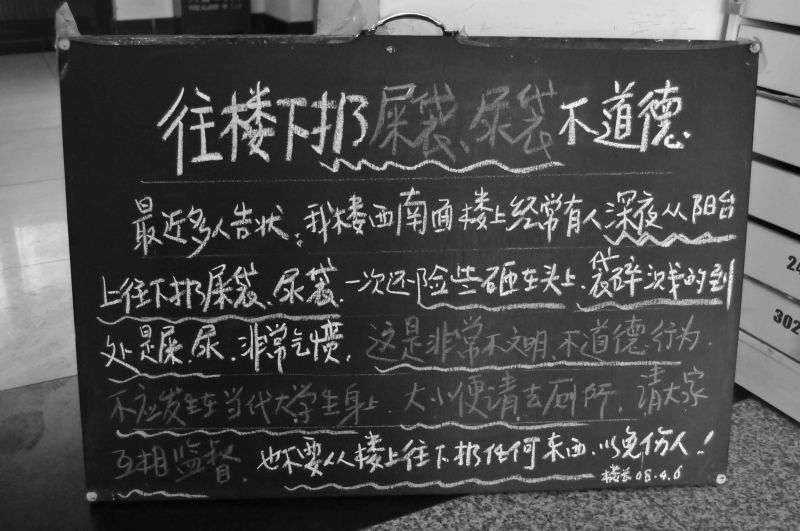 往楼下扔屎袋、尿袋不道德.
最近多人告状:我楼西南面楼上经常有人深夜从阳台
上往下扔屎袋、尿袋.一次还险些砸在头上、袋碎溅的到
处是屎、尿.非常气愤.这是非常不文明、不道德行为.
不应发生在当代大学生身上.大小便请去厕所,请大家
互相监督.也不要从楼上往下扔任何东西.以免伤人!
楼长 08.4.6
302